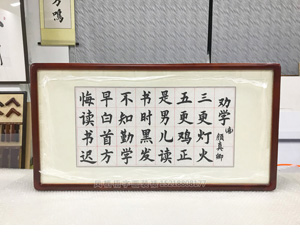 劝学
颜真卿
三更灯火
五更鸡正
是男儿读
书时黑发
不知勤学
早白首方
悔读书迟
鸣